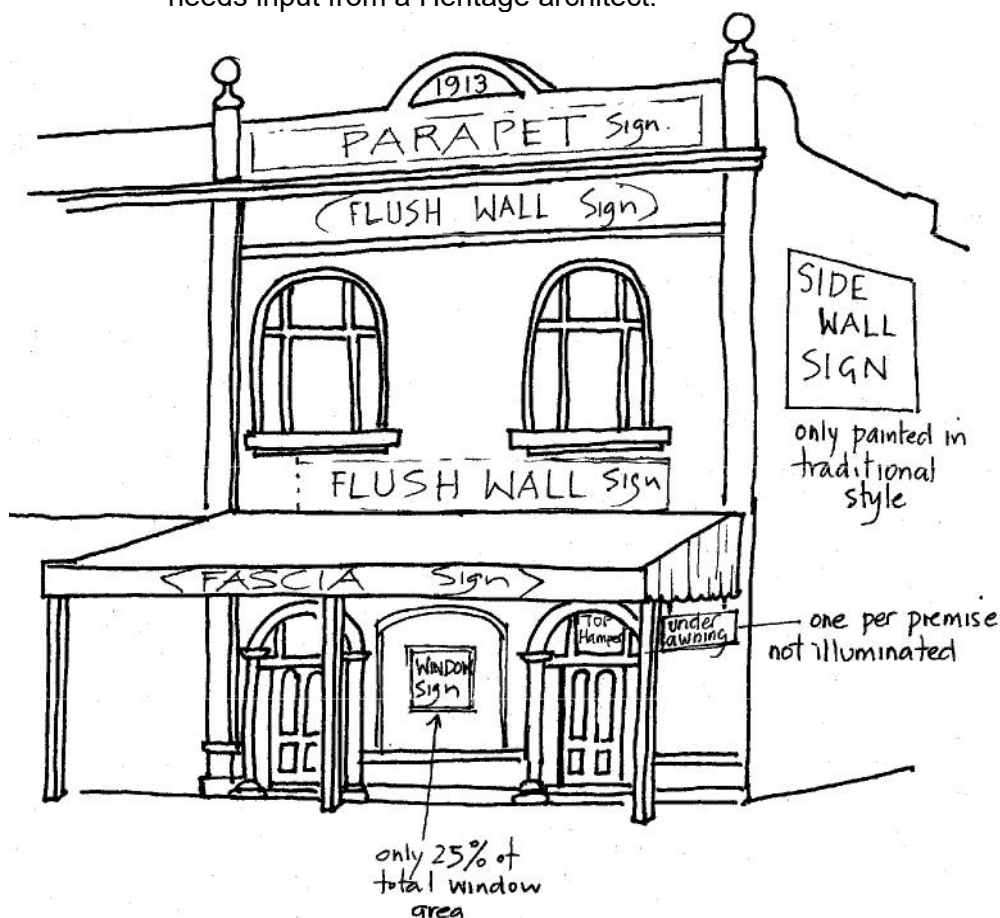 needs input from a Heritage architect.
1913
PARAPET Sign.
(FLUSH WALL Sign)
SIDE
WALL
SIGN
only painted in
traditional
style
FLUSH WALL Sign
<FASCIA Sign>
TOP
Hamper
under
awning
one per premise
not illuminated
WINDOW
Sign
only 25% of
total window
area